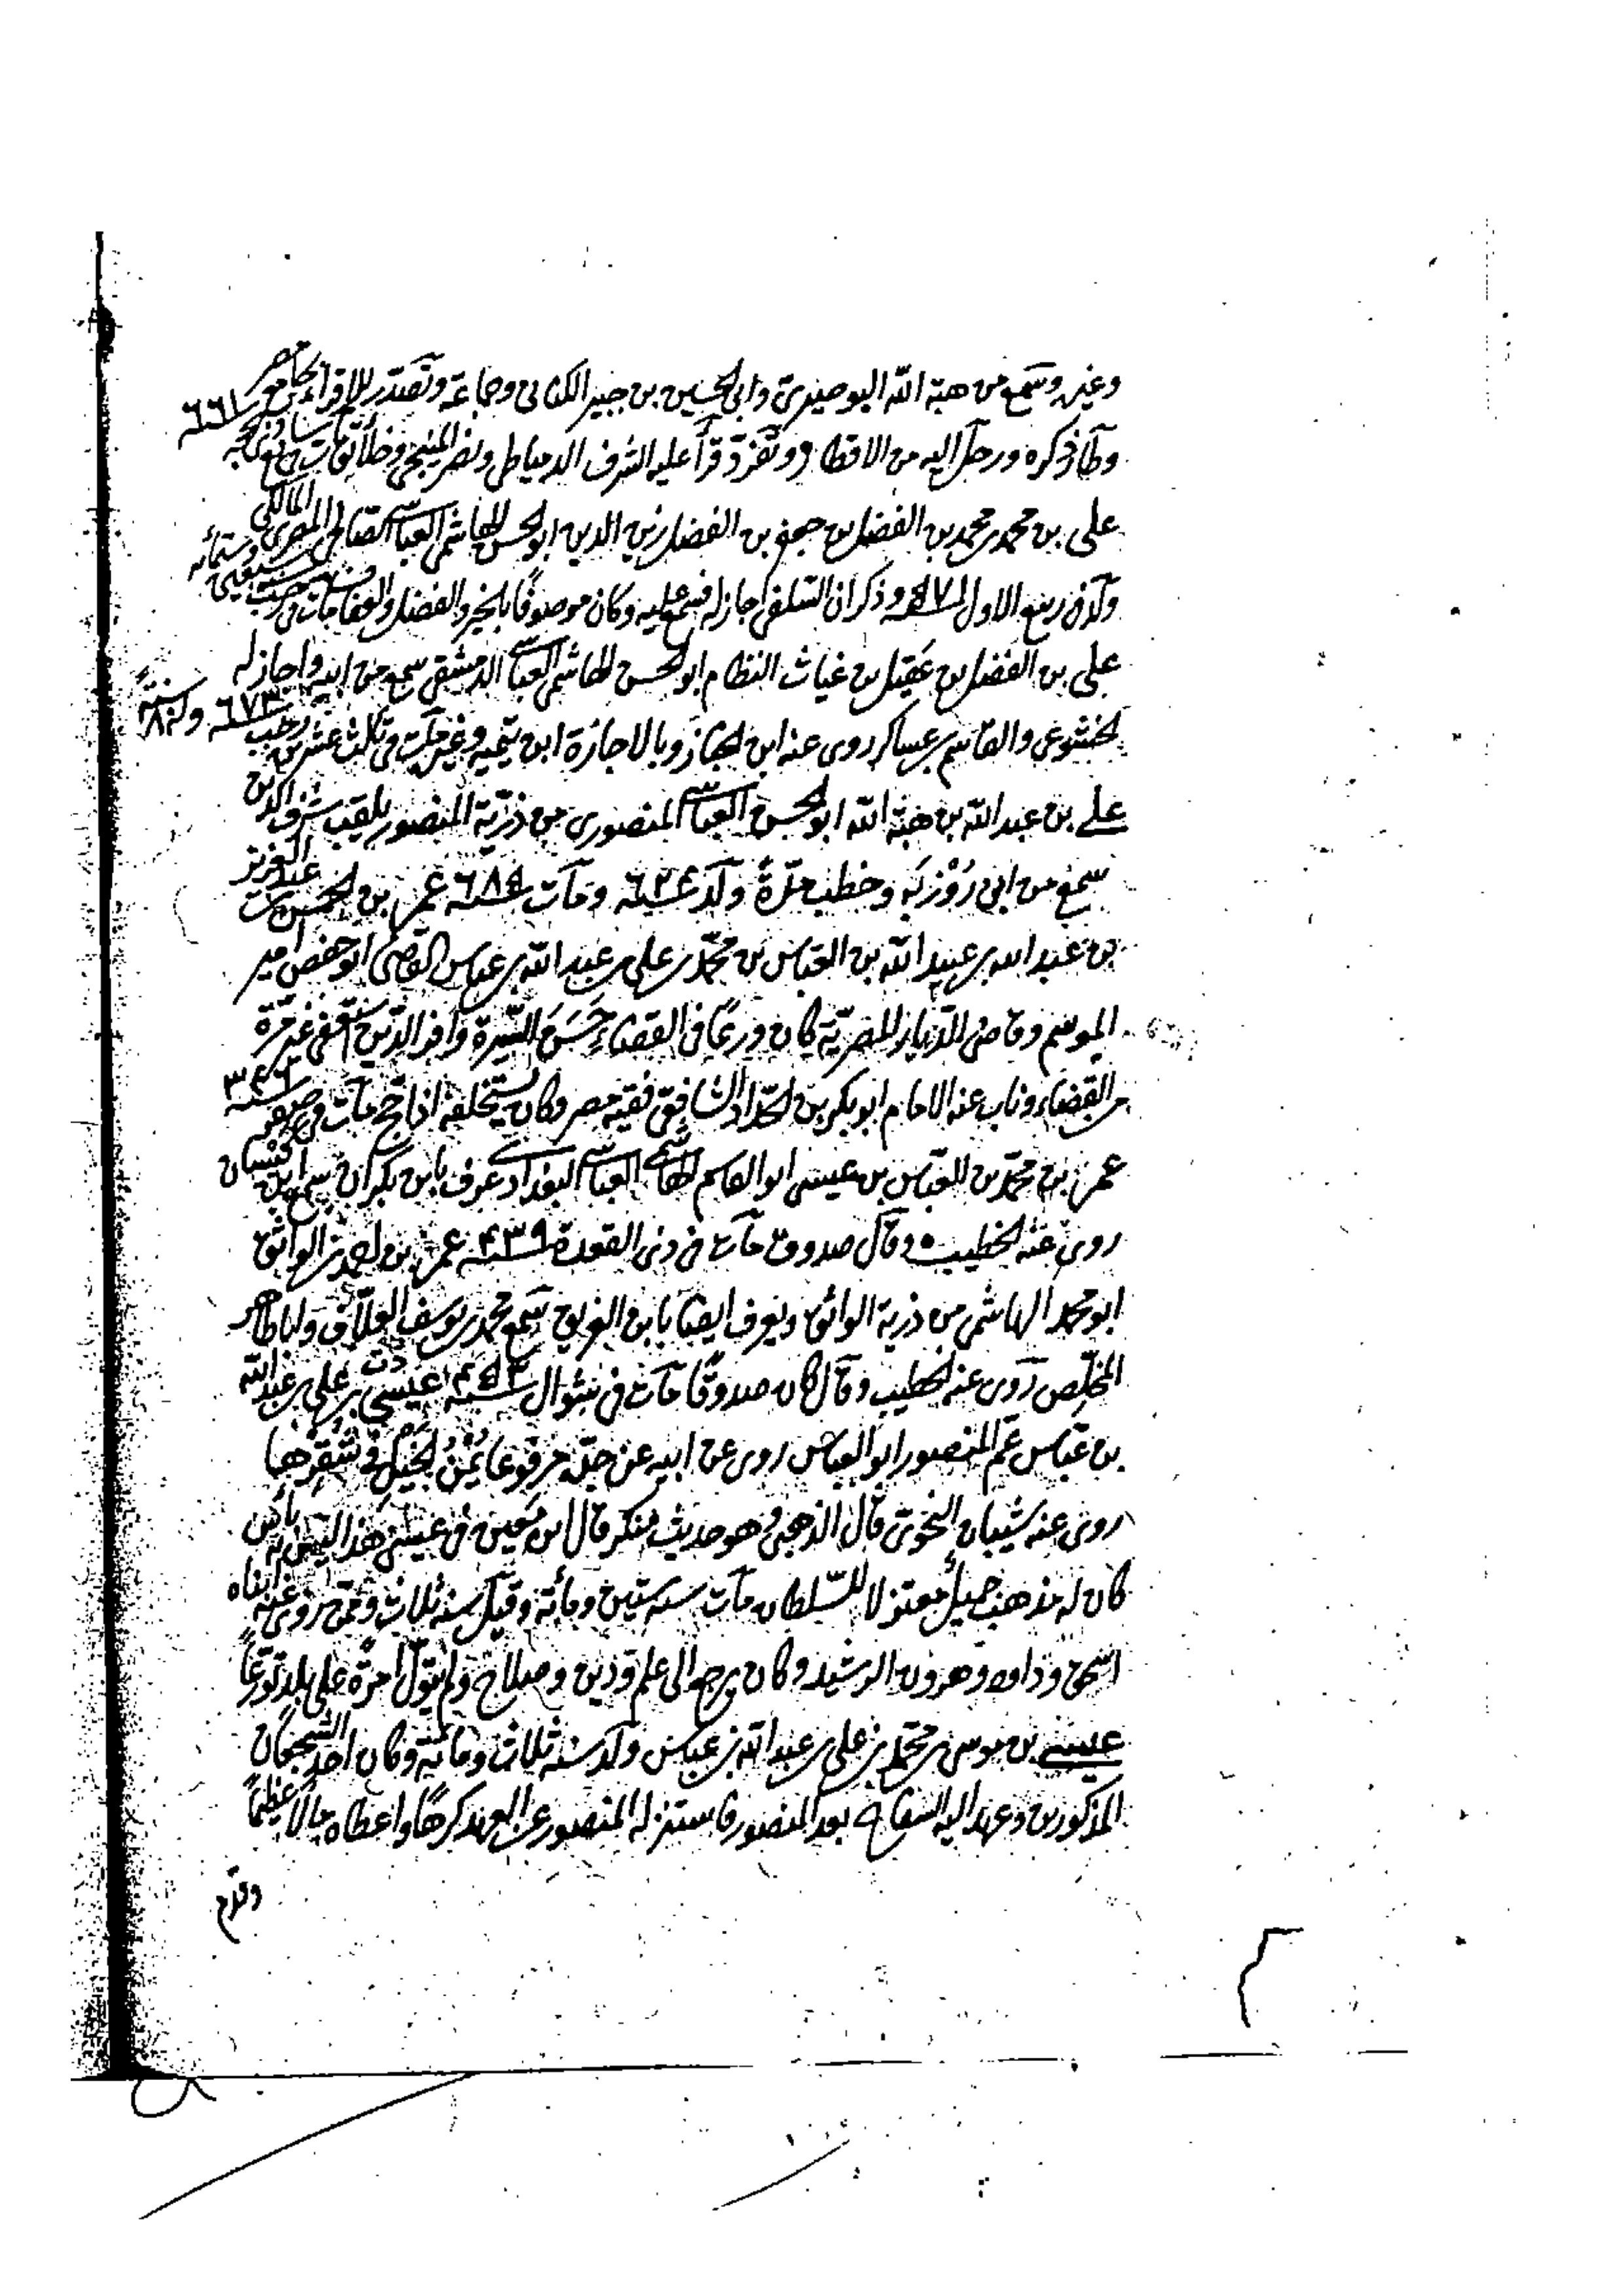 وغيره وسمع من هبة الله البوصيري وابي الحسين بن جبير الكناني وجماعة وتصدر للاقراء بجامع مصر
وطار ذكره ورحل اليه من الاقطار وتفرد قرأ عليه الشرف الدمياطي ونصر المنبجي وخلائق مات سابع ذي الحجة سنة ٦٦١
علي بن محمد بن محمد بن الفضل بن جعفر بن الفضل زين الدين ابو الحسن الهاشمي العباسي المصري المالكي
ولد في ربيع الاول سنة وذكر ان السلفي اجاز له فسمع عليه وكان موصوفا بالخير والفضل والعفاف مات في رجب سنة سبعين وستمائه
علي بن الفضل بن عقيل بن غياث النظام ابو الحسن الهاشمي العباسي الدمشقي سمع من ابيه واجاز له
الخشوعي والقاسم بن عساكر روى عنه ابن الخباز وبالاجازة ابن تيمية وغيره مات في ثالث عشرين رجب سنة ٦٧٣ وله ٨ سنة
علي بن عبد الله بن هبة الله ابو الحسن العباسي المنصوري من ذرية المنصور يلقب شرف الدين
سمع من ابي روزبه وخطب مدة ولد سنة ٦٢٤ ومات سنة ٦٨٥ عمر بن الحسن بن عبد العزيز
بن عبد الله بن عبيد الله بن العباس بن محمد بن علي بن عبد الله بن عباس القاضي ابو حفص امير
الموسم وقاضي الديار المصرية كان ورعا في القضاء حسن السيرة وافر الدين استعفى غير مرة
من القضاء وناب عنه الامام ابو بكر بن الحداد الشافعي فقيه مصر وكان يستخلفه اذا حج مات في صفر سنة ٣٤٦
عمر بن محمد بن العباس بن عيسى ابو القاسم الهاشمي العباسي البغدادي عرف بابن بكران سمع ابن كيسان
روى عنه الخطيب وقال صدوق مات في ذي القعدة سنة ٤٣٩ عمر بن احمد بن الواثق
ابو محمد الهاشمي من ذرية الواثق ويعرف ايضا بابن الغريق سمع محمد بن يوسف العلاف وابا طاهر
المخلص روى عنه الخطيب وقال كان صدوقا مات في شوال سنة ٤٥٣ عيسى بن علي بن عبد الله
بن عباس عم المنصور ابو العباس روى عن ابيه عن جده مرفوعا يمن الخيل في شقرها
روى عنه شيبان النحوي قال الذهبي وهو حديث منكر قال ابن معين في عيسى هذا ليس به باس
كان له مذهب جميل معتزلا للسلطان مات سنة ستين ومائة وقيل سنة ثلاث وممن روى عنه ابناه
اسحق وداود وهرون الرشيد وكان يرجع الى علم ودين وصلاح ولم يتول امرة على بلد تورعا
عيسى بن موسى بن محمد بن علي بن عبد الله بن عباس ولد سنة ثلاث ومائة وكان احد الشجعان
المذكورين وعهد اليه السفاح بعد المنصور فاستنزله المنصور عن العهد كرها واعطاه مالا عظيما